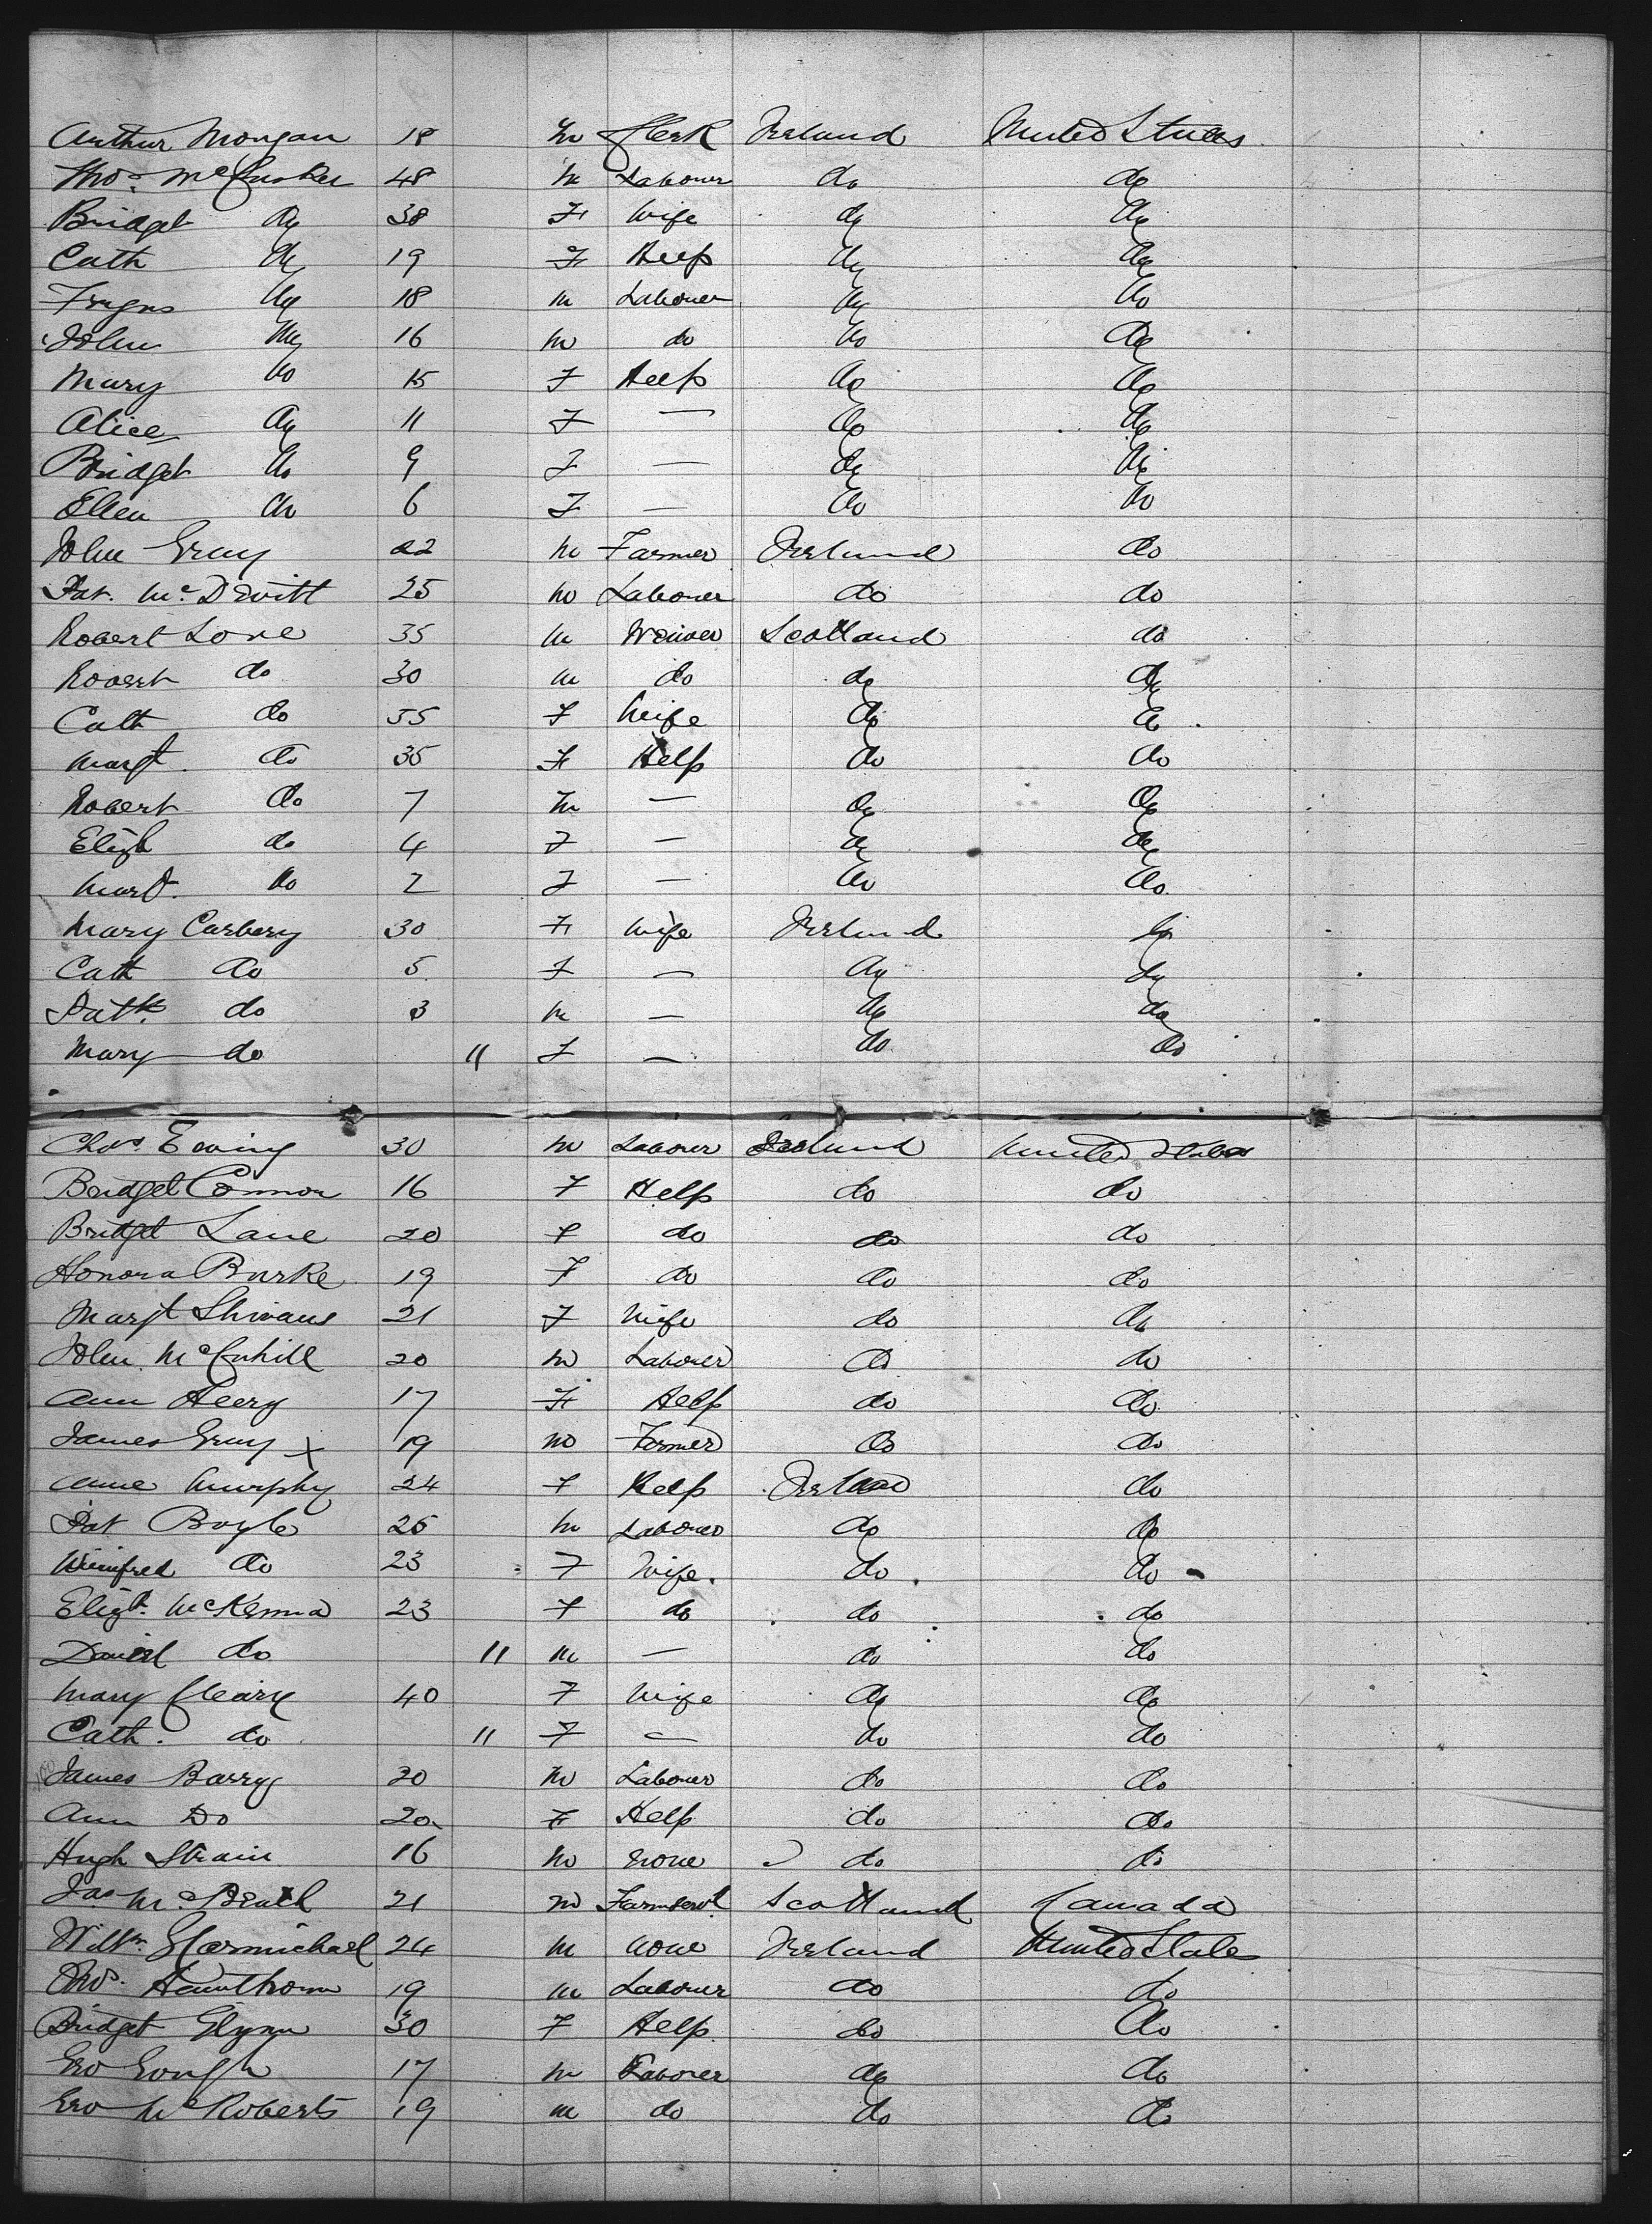 Arthur Morgan 18 m Clerk Ireland United States
Thos. McCusker 48 m Labourer do do
Bridget do 38 F Wife do do
Cath do 19 F Help do do
Fergus do 18 m Labourer do do
John do 16 m do do do
Mary do 15 F Help do do
Alice do 11 F — do do
Bridget do 9 F — do do
Ellen do 6 F — do do
John Gray 22 m Farmer Ireland do
Pat. McDevitt 25 m Labourer do do
Robert Love 35 m Weaver Scotland do
Robert do 30 m do do do
Cath do 55 F Wife do do
Margt. do 35 F Help do do
Robert do 7 m — do do
Elizh do 4 F — do do
Margt. do 2 F — do do
Mary Carbery 30 F Wife Ireland do
Cath do 5 F — do do
Patk. do 3 m — do do
Mary do 11 F — do do
Chas. Ewing 30 m Labourer Ireland United States
Bridget Connor 16 F Help do do
Bridget Lane 20 F do do do
Honora Burke 19 F do do do
Margt 21 F Wife do do
John McCahill 20 m Labourer do do
Ann Heery 17 F Help do do
James Gray x 19 m Farmer do do
Anne Murphy 24 F Help Ireland do
Pat Boyle 25 m Labourer do do
Winifred do 23 F Wife. do do
Elizh. McKenna 23 F do do do
Daniel do 11 m — do do
Mary Cleary 40 F Wife do do
Cath. do 11 F — do do
James Barry 20 m Labourer do do
Ann Do 20 F Help do do
Hugh Strain 16 m none do do
Jas McBeath 21 m Farm Servt Scotland Canada
Willm. Carmichael 24 m none Ireland United States
Thos. Hawthorn 19 m Labourer do do
Bridget Glynn 30 F Help. do do
Geo Gough 17 m Labourer do do
Geo McRoberts 19 m do do do